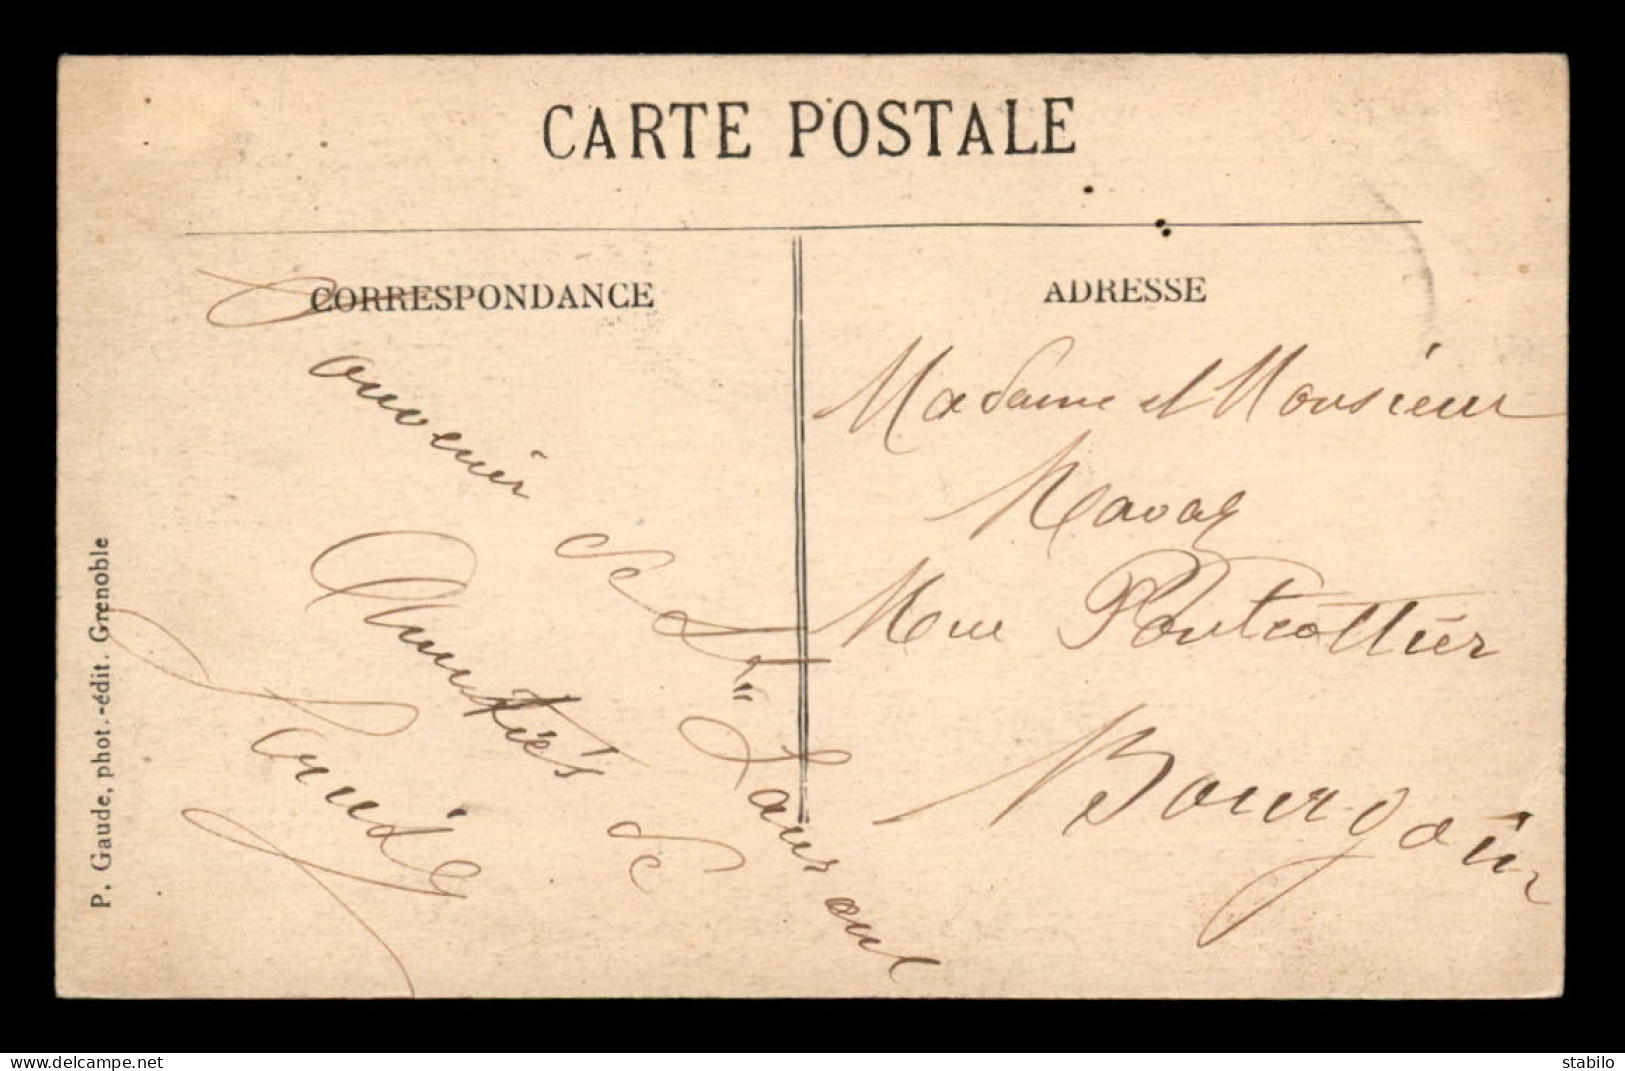 CARTE POSTALE
CORRESPONDANCE
Souvenir de St Laurent
Amitiés de
ADRESSE
Madame et Monsieur
Rue Pontcottier
Bourgoin
P. Gaude, phot.-édit. Grenoble
www.delcampe.net
stabilo